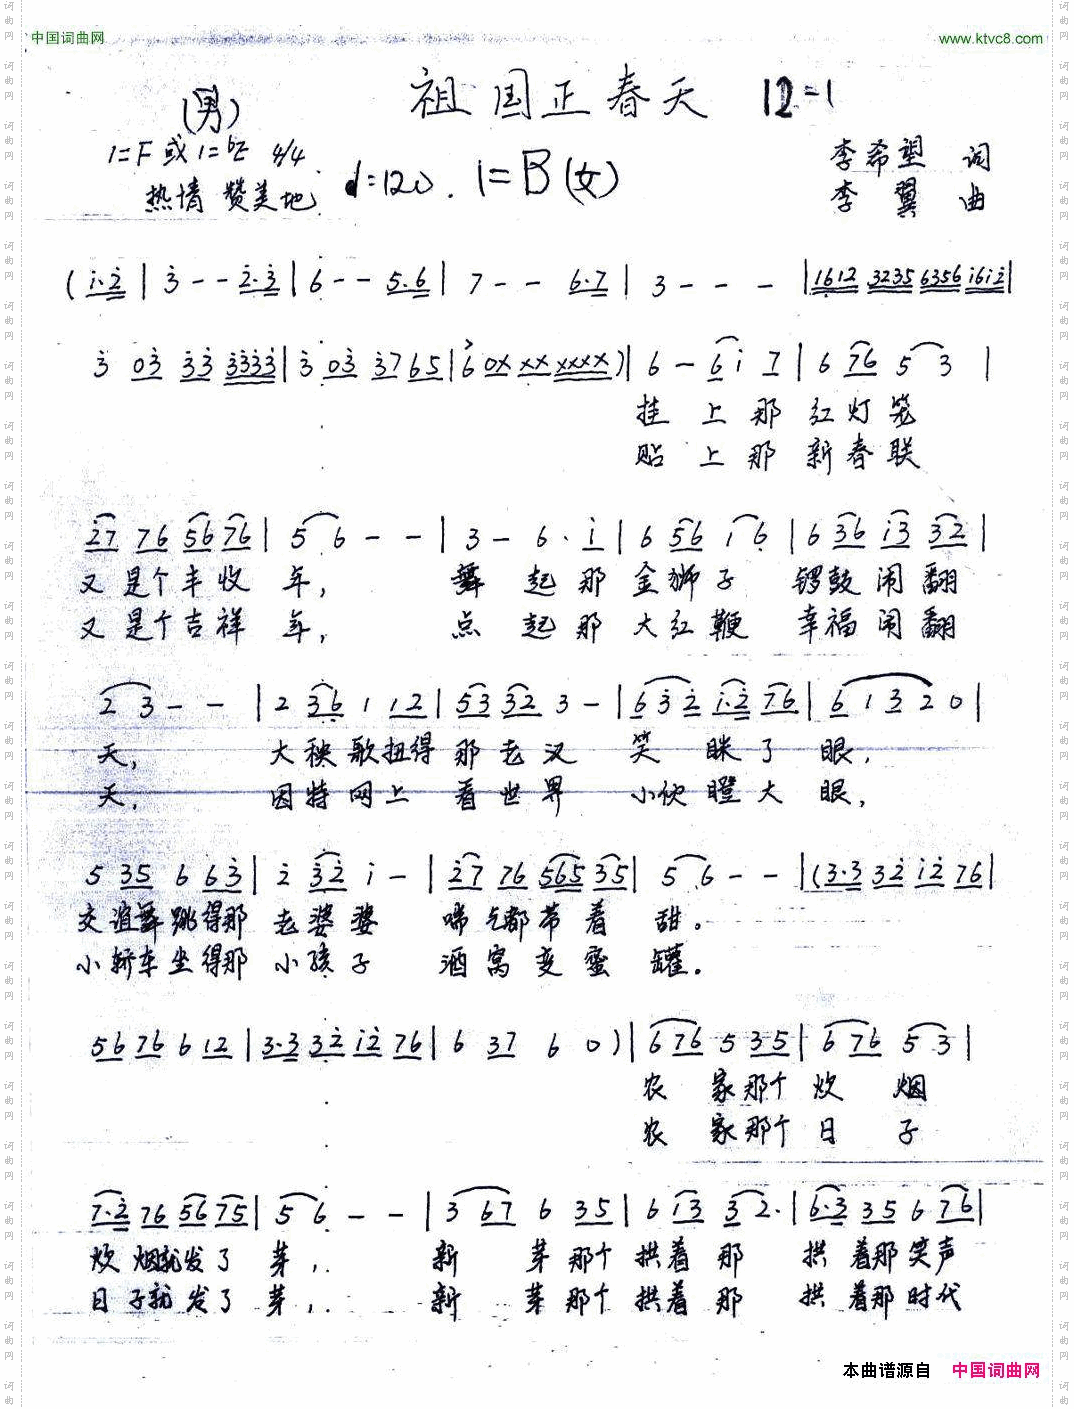 中国词曲网 www.ktvc8.com
祖国正春天 12-1
(男)
1=F 或 1=bE 4/4
♩=120. 1=B(女)
热情 赞美地
李希望 词
李翼 曲
(i·2 | 3 - - 2·3 | 6 - - 5·6 | 7 - - 6·7 | 3 - - - | 1612 3235 6356 i6i2 |
3 03 33 3333 | 3 03 37 65 | 6 0x xx xxxx ) | 6 - 6i 7 | 6 76 5 3 |
挂上那红灯笼
贴上那新春联
27 76 56 76 | 5 6 - - | 3 - 6· i | 6 56 1 6 | 6 36 i3 32 |
又是个丰收年, 舞起那金狮子 锣鼓闹翻
又是个吉祥年, 点起那大红鞭 幸福闹翻
2 3 - - | 2 36 1 12 | 53 32 3 - | 632 i·2 76 | 6 1 3 2 0 |
天, 大秧歌扭得那老汉 笑眯了眼,
天, 因特网上看世界 小伙瞪大眼,
5 35 6 63 | 2 32 i - | 27 76 565 35 | 5 6 - - | (3·3 32 i2 76 |
交谊舞跳得那老婆婆 喘气都带着甜。
小轿车坐得那小孩子 酒窝变蜜罐。
56 76 6 12 | 3·3 32 i2 76 | 6 37 6 0 ) | 676 5 35 | 6 76 5 3 |
农家那个炊烟
农家那个日子
7·2 76 56 75 | 5 6 - - | 3 67 6 35 | 6 i3 3 2· | 6·3 35 6 76 |
炊烟就发了芽, 新芽那个拱着那 拱着那笑声
日子就发了芽, 新芽那个拱着那 拱着那时代
本曲谱源自 中国词曲网